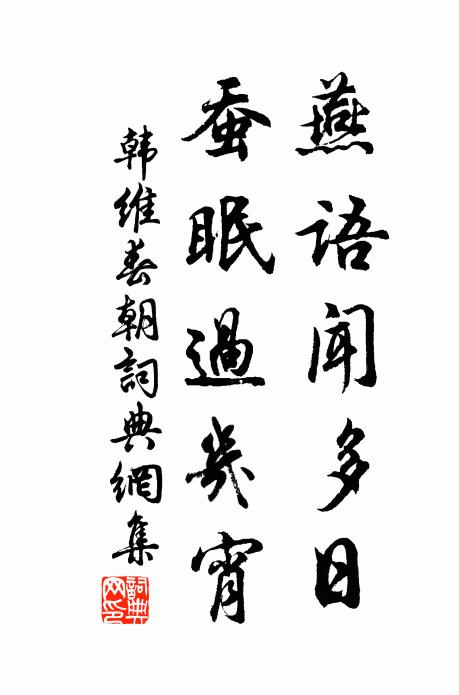 燕语闻多日
蚕眠過幾宵
韩維春朝詞典網集
詞典网印